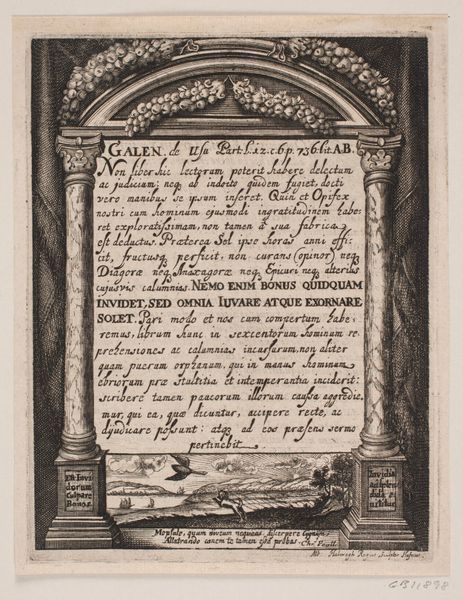 GALEN. de Usu Part. l. 12. c. 6 p. 736. lit. A.B.
Non liber hic lectorum poterit habere delectum
ac judicium; neq, ab indocto quidem fugiet, docti
vero manibus se ipsum inferet. Quin et Opifex
nostri cum hominum ejusmodi ingratitudinem habe:
ret exploratissimam, non tamen à sua fabrica
est deductus. Præterea Sol ipse horas anni effi:
cit, fructusq, perficit, non curans (opinor) neq,
Diagoræ neq, Anaxagoræ neq, Epicuri neq, alterius
cujusvis calumnias. NEMO ENIM BONUS QUIDQUAM
INVIDET, SED OMNIA IUVARE ATQUE EXORNARE
SOLET. Pari modo et nos cum compertum habe:
remus, librum hunc in sexcentorum hominum re:
prehensiones ac calumnias incursurum, non aliter
quam puerum orphanum, qui in manus hominum
ebriorum præ stultitia et intemperantia inciderit:
scribere tamen paucorum illorum caussa aggredie,
mur, qui ea, quæ dicuntur, accipere recte, ac
dijudicare possunt: atq, ad eos præsens sermo
pertinebit
Est Invi
dorum
Culpare
Bonos.
Invidia
Mopsule, quum divum nequeas, discerpere
Allatrando canem te tamen esse probas.
Alb. Haelwegh Regius Sculptor Hafniæ.
GB11898